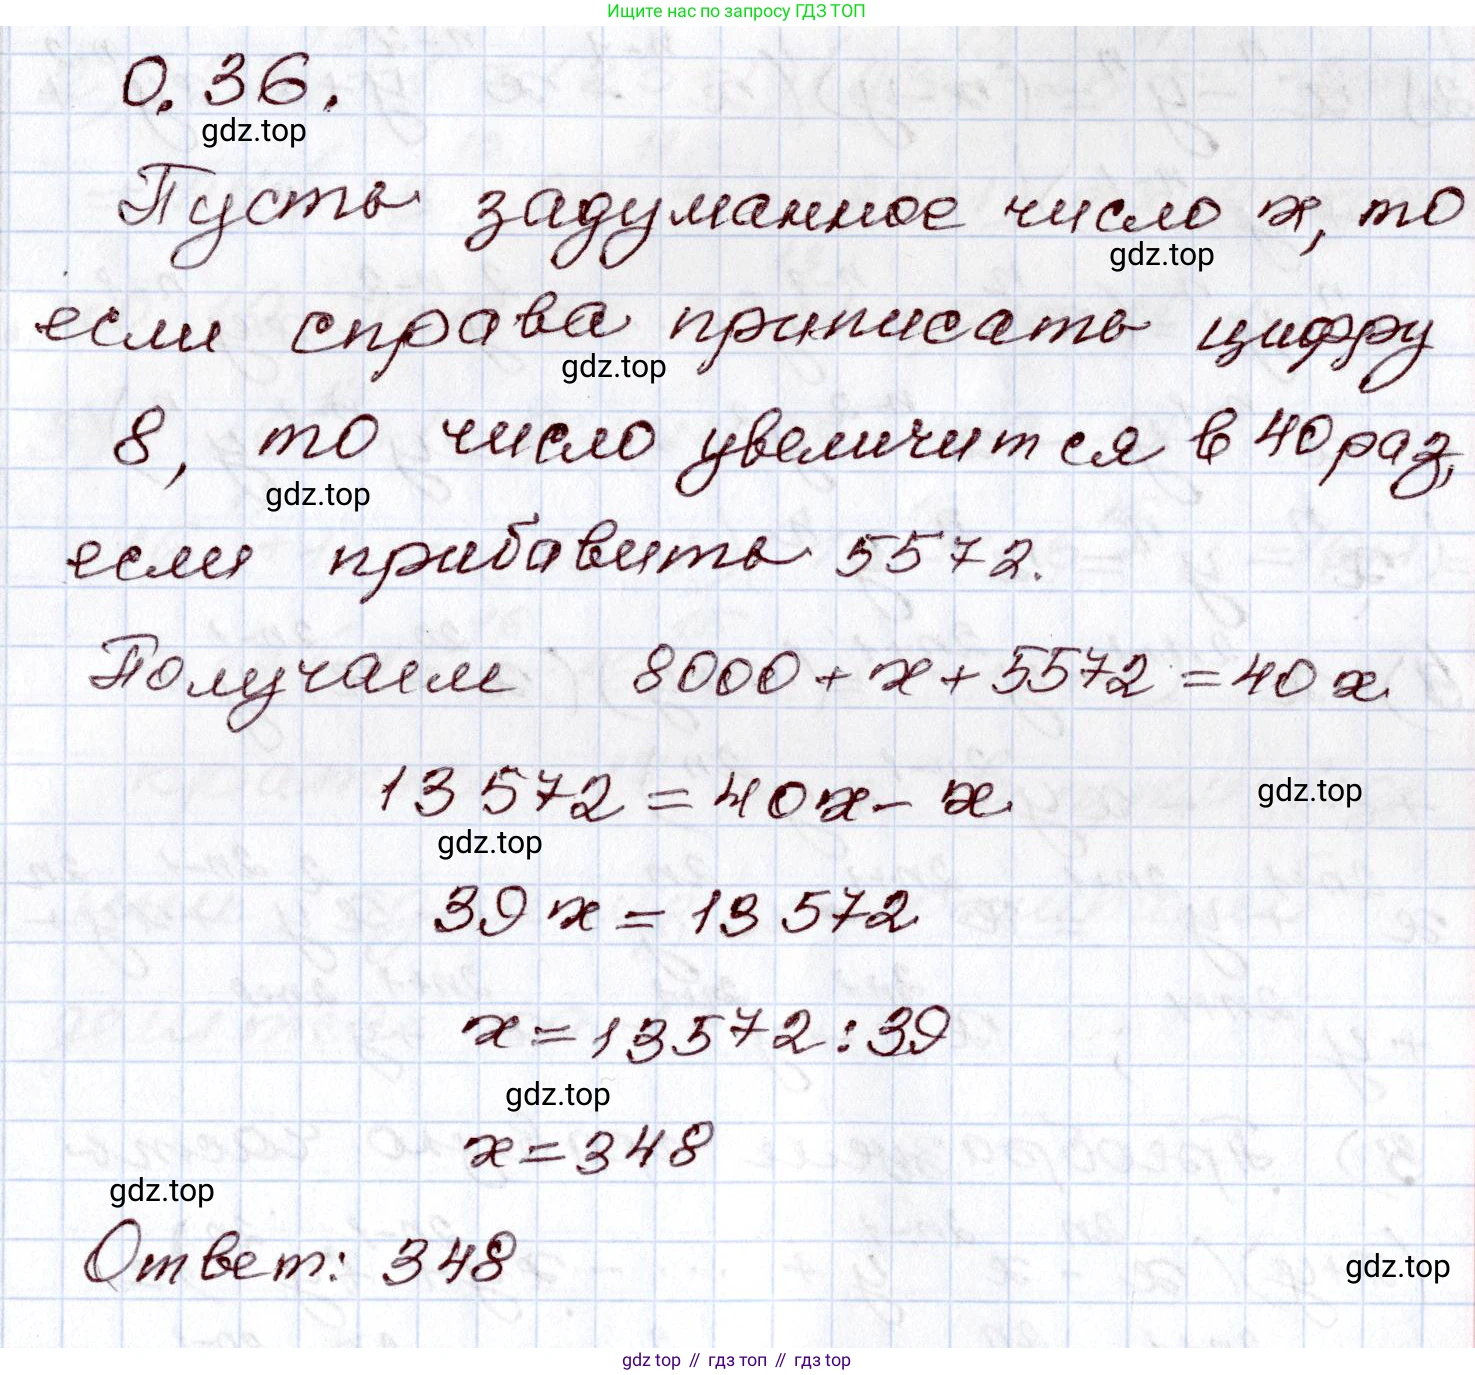 Ищите нас по запросу ГДЗ ТОП
0.36.
gdz.top
Пусть задуманное число x, то
gdz.top
если справа приписать цифру
gdz.top
8, то число увеличится в 40 раз,
gdz.top
если прибавить 5572.
Получаем 8000 + x + 5572 = 40x
13572 = 40x - x
gdz.top
gdz.top
39x = 13572
x = 13572 : 39
gdz.top
x = 348
gdz.top
Ответ: 348
gdz.top
gdz top // гдз топ // гдз top